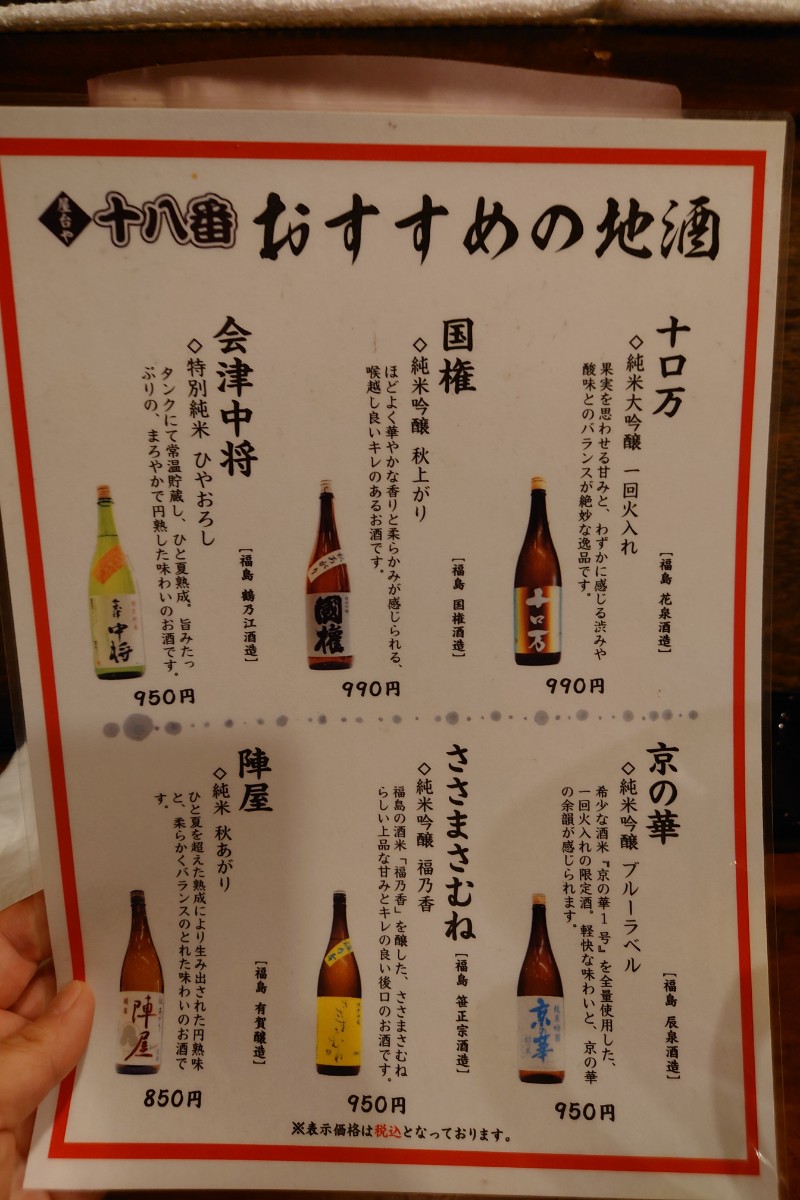 屋台や
十八番
おすすめの地酒
十口万
◇純米大吟醸 一回火入れ
果実を思わせる甘みと、わずかに感じる渋みや
酸味とのバランスが絶妙な逸品です。
[福島 花泉酒造]
十口万
990円
国権
◇純米吟醸 秋上がり
ほどよく華やかな香りと柔らかみが感じられる、
喉越し良いキレのあるお酒です。
[福島 国権酒造]
國権
990円
会津中将
◇特別純米 ひやおろし
タンクにて常温貯蔵し、ひと夏熟成。旨みたっ
ぷりの、まろやかで円熟した味わいのお酒です。
[福島 鶴乃江酒造]
中将
950円
京の華
◇純米吟醸 ブルーラベル
希少な酒米『京の華1号』を全量使用した、
一回火入れの限定酒。軽快な味わいと、京の華
の余韻が感じられます。
[福島 辰泉酒造]
京の華
950円
ささまさむね
◇純米吟醸 福乃香
福島の酒米「福乃香」を醸した、ささまさむね
らしい上品な甘みとキレの良い後口のお酒です。
[福島 笹正宗酒造]
ささまさむね
950円
陣屋
◇純米 秋あがり
ひと夏を超えた熟成により生み出された円熟味
と、柔らかくバランスのとれた味わいのお酒で
す。
[福島 有賀醸造]
陣屋
850円
※表示価格は税込となっております。